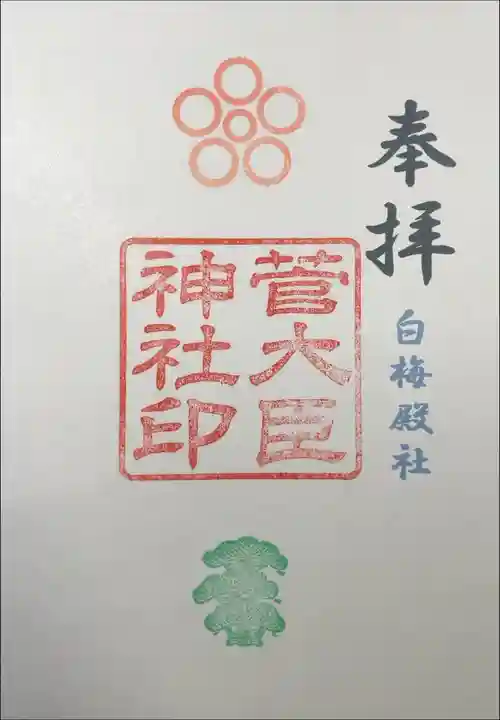 奉拝
白梅殿社
菅大臣
神社印